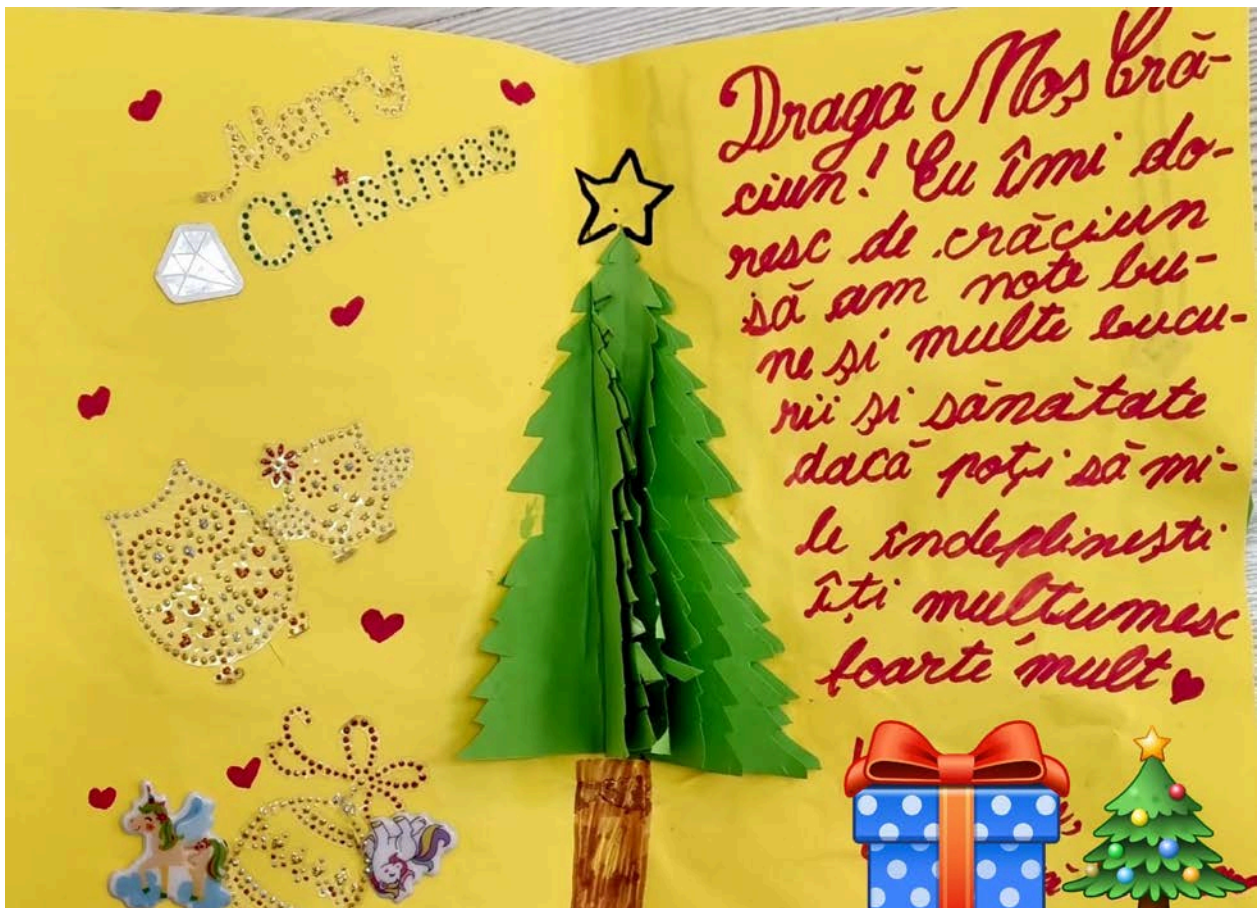 Merry
Christmas
Dragă Moș Cră-
ciun! Eu îmi do-
resc de crăciun
să am note bu-
ne și multe bucu-
rii și sănătate
dacă poți să mi-
le îndeplinești
îți mulțumesc
foarte mult